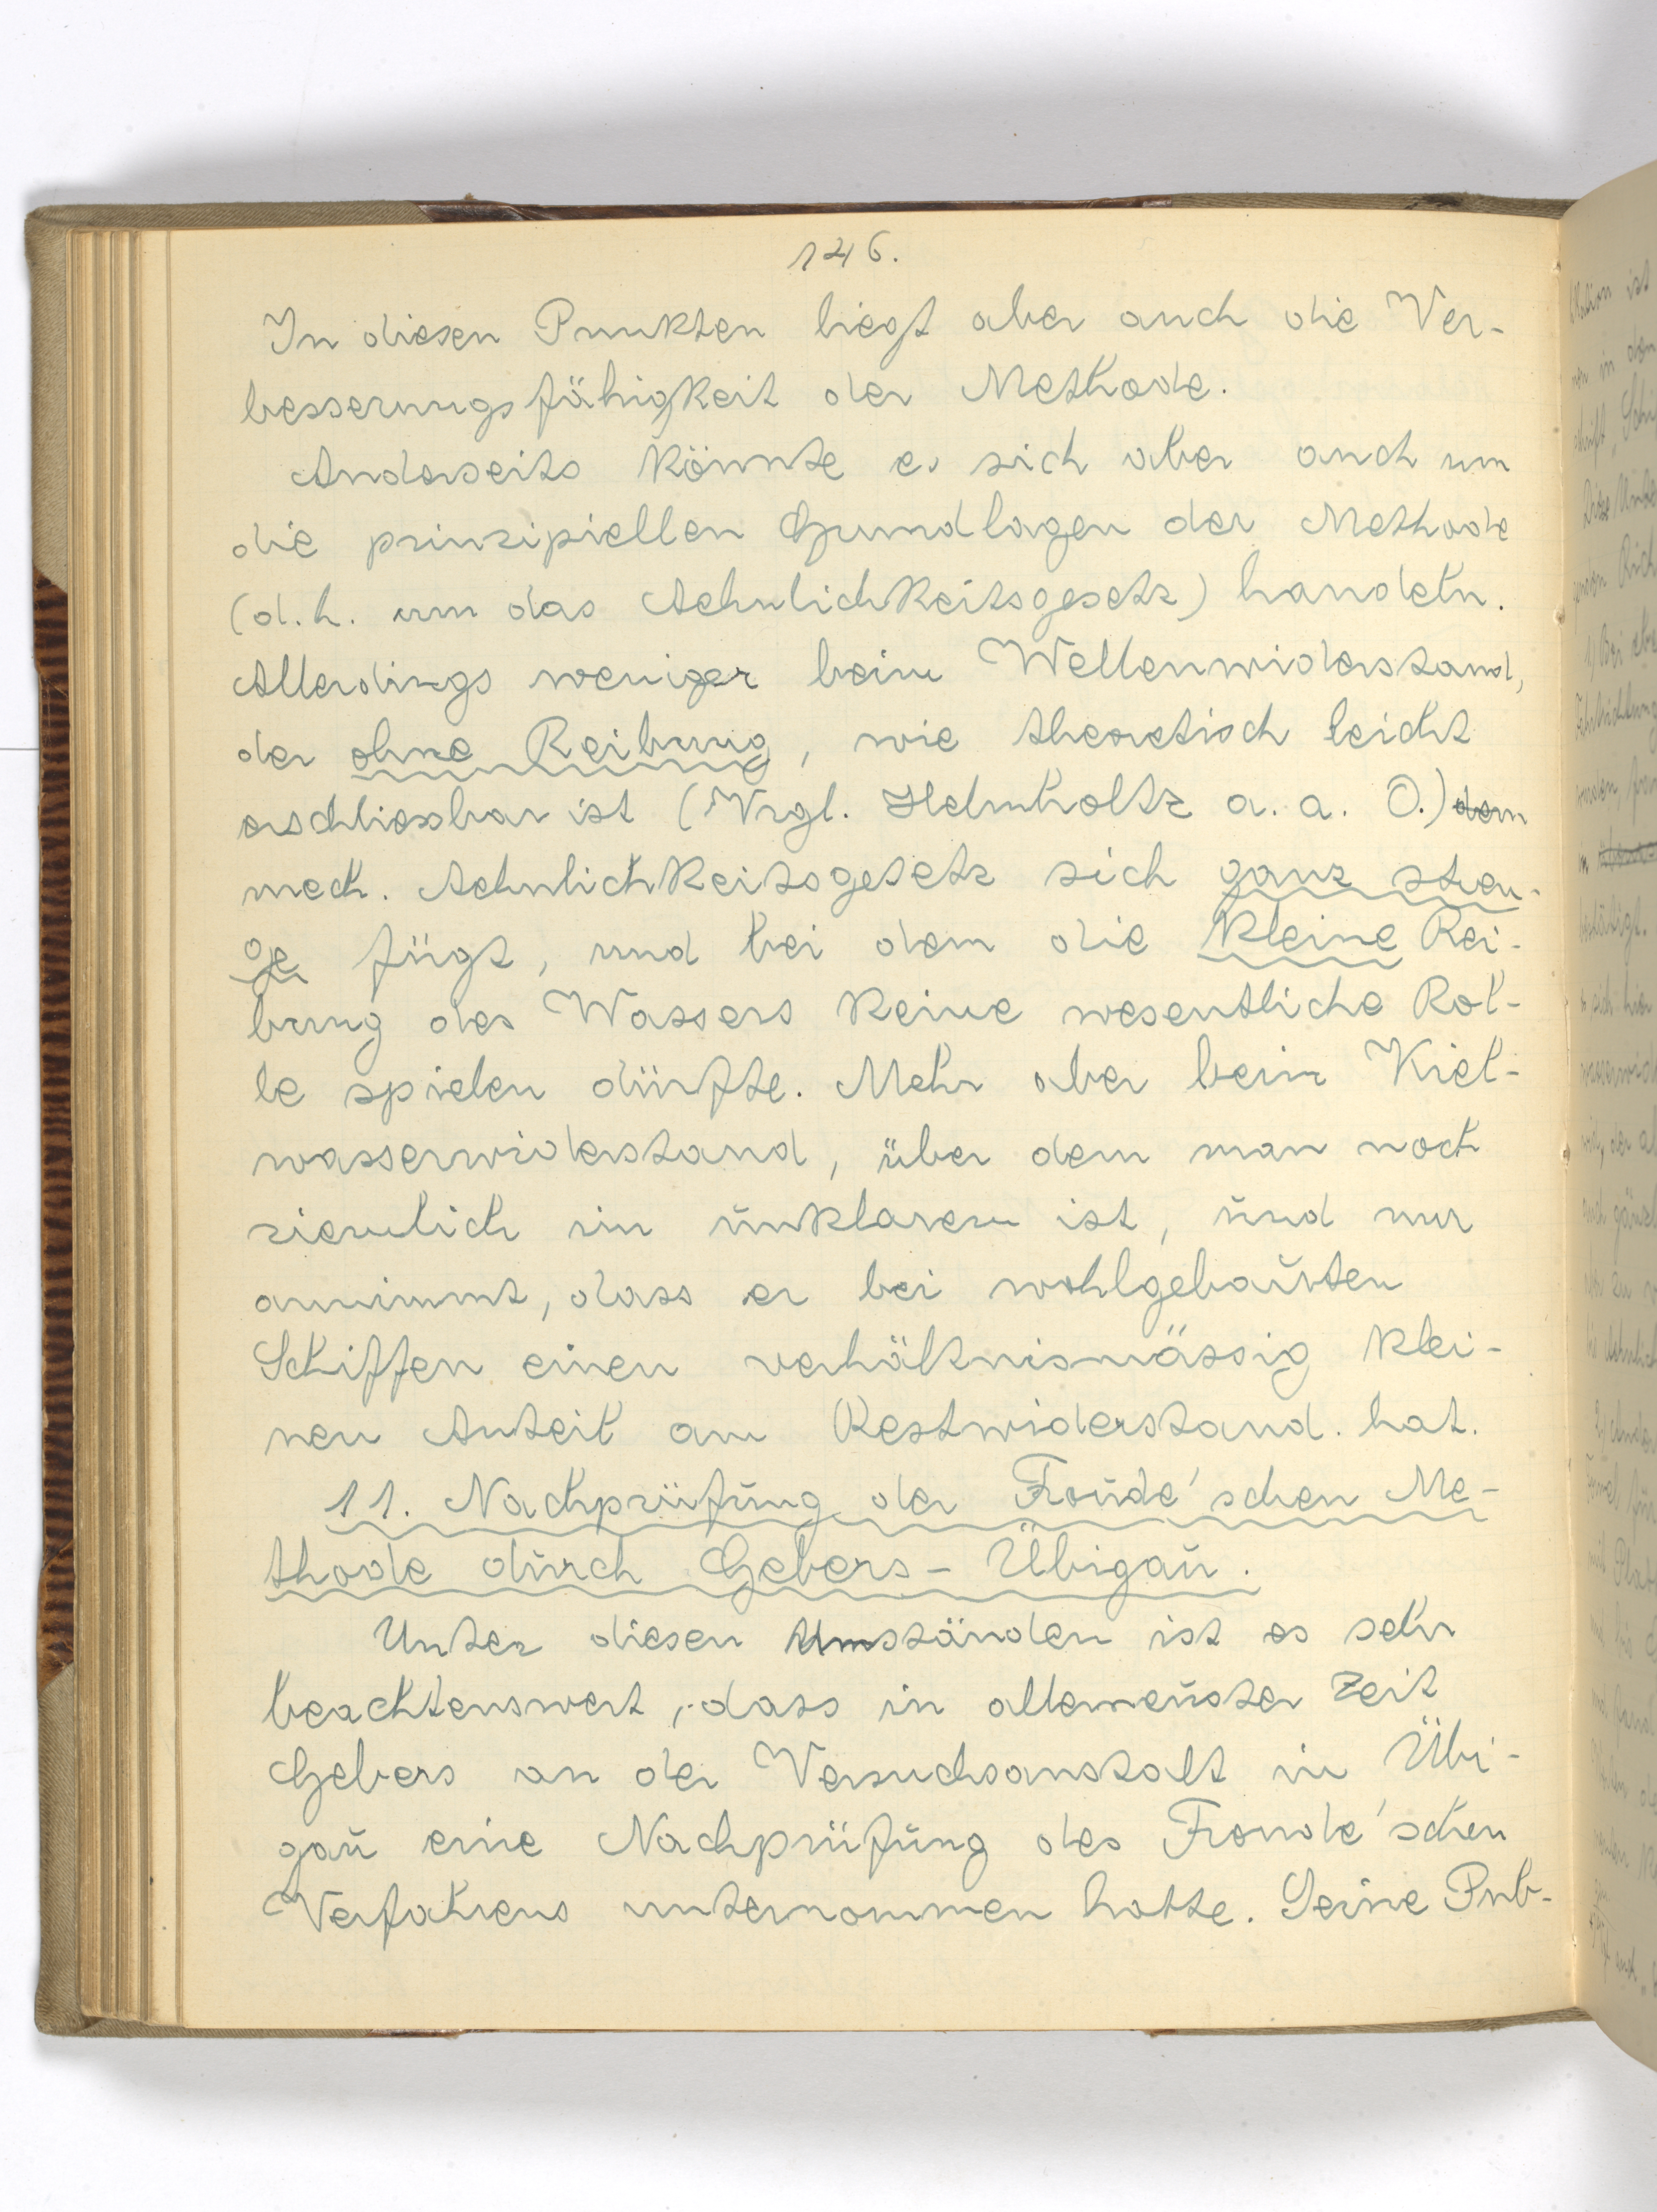 146.
In diesen Punkten liegt aber auch die Ver-
besserungsfähigkeit der Methode.
Anderseits könnte es sich aber auch um
die prinzipiellen Grundlagen der Methode
(d.h. um das Aehnlichkeitsgesetz) handeln.
Allerdings weniger beim Wellenwiderstand,
der ohne Reibung, wie theoretisch leicht
erschliessbar ist (Vrgl. Helmholtz a. a. O.) dem
mech. Aehnlichkeitsgesetz sich ganz stren-
ge fügt, und bei dem die kleine Rei-
bung des Wassers keine wesentliche Rol-
le spielen dürfte. Mehr aber beim Kiel-
wasserwiderstand, über dem man noch
ziemlich im unklaren ist, und nur
annimmt, dass er bei wohlgebauten
Schiffen einen verhältnismässig klei-
nen Anteil am Restwiderstand. hat.
11. Nachprüfung der Froude'schen Me-
thode durch Gebers - Übigau.
Unter diesen Umständen ist es sehr
beachtenswert, dass in allerneuster Zeit
Gebers an der Versuchsanstalt in Übi-
gau eine Nachprüfung des Froude'schen
Verfahrens unternommen hatte. Seine Pub-